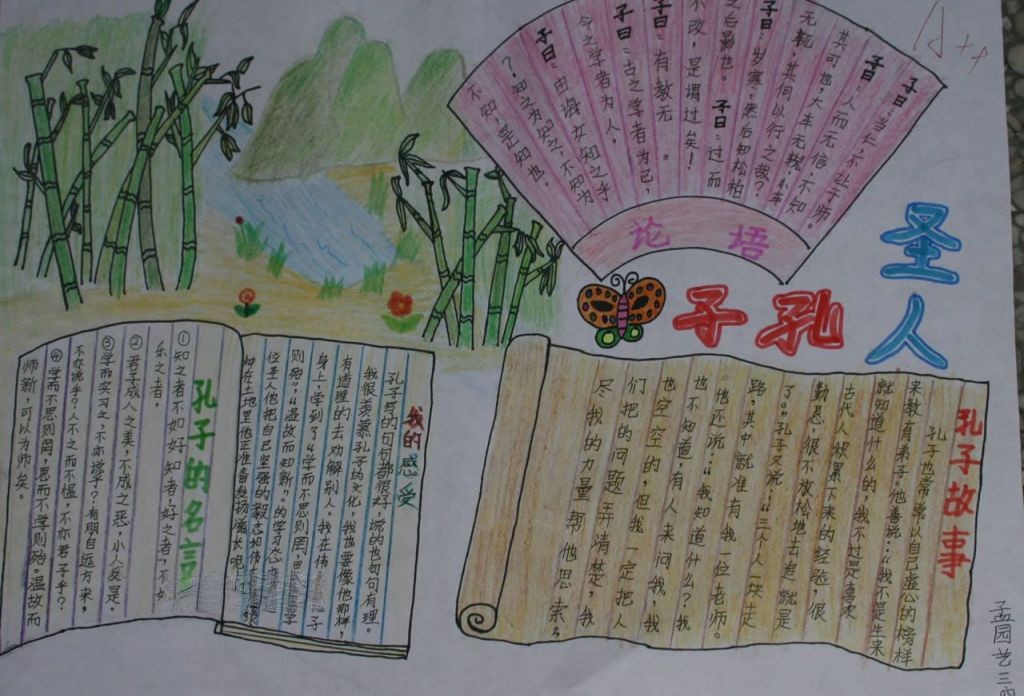 子曰:当仁,不让于师。
子曰:人而无信,不知
其可也,大车无輗,小车
无軏,其何以行之哉?
子曰:岁寒,然后知松柏
之后影也。子曰:过而
不改,是谓过矣!
子曰:有教无
子曰:古之学者为己,
今之学者为人。
子曰:由诲女知之乎
?知之为知之,不知为
不知,是知也。
论培
A++
圣人
孔子
孔子故事
孔子也常常以自己感的榜样
来教育弟子。他善说:“我不是生来
就知道什么的,我不过是喜欢
古代人积累下来的经验,很
勤恳,很不放松地去追就是
了。”孔子又说:“三个人一块走
路,其中就准有我一位老师。
他还说:“我知道什么?我
也不知道,有人来问我,我
也空空的,但我一定把人
们把的问题弄清楚,我
尽我的力量帮他思索,
我的感受
孔子写的句句都很好,说的也句句有理。
我很羡慕孔子的文化,我也要像他那样,
有道理的去劝解别人。我在伟
身上,学到了“学而不思则罔,思
则殆”,“温故而知新”。的学习态
位圣人他把自己坚强的毅志和伟
种在土地里他正准备发扬滋长呢
孔子的名言
①知之者不如好知者,好之者,不如
乐之者。
②君子成人之美,不成之恶,小人反是。
③学而实习之,不亦说乎?有朋自远方来,
不亦说乎?人不之而不愠,不亦君子乎?
④学而不思则罔,思而不学则殆。温故而
师新,可以为师矣。
孟园艺三四